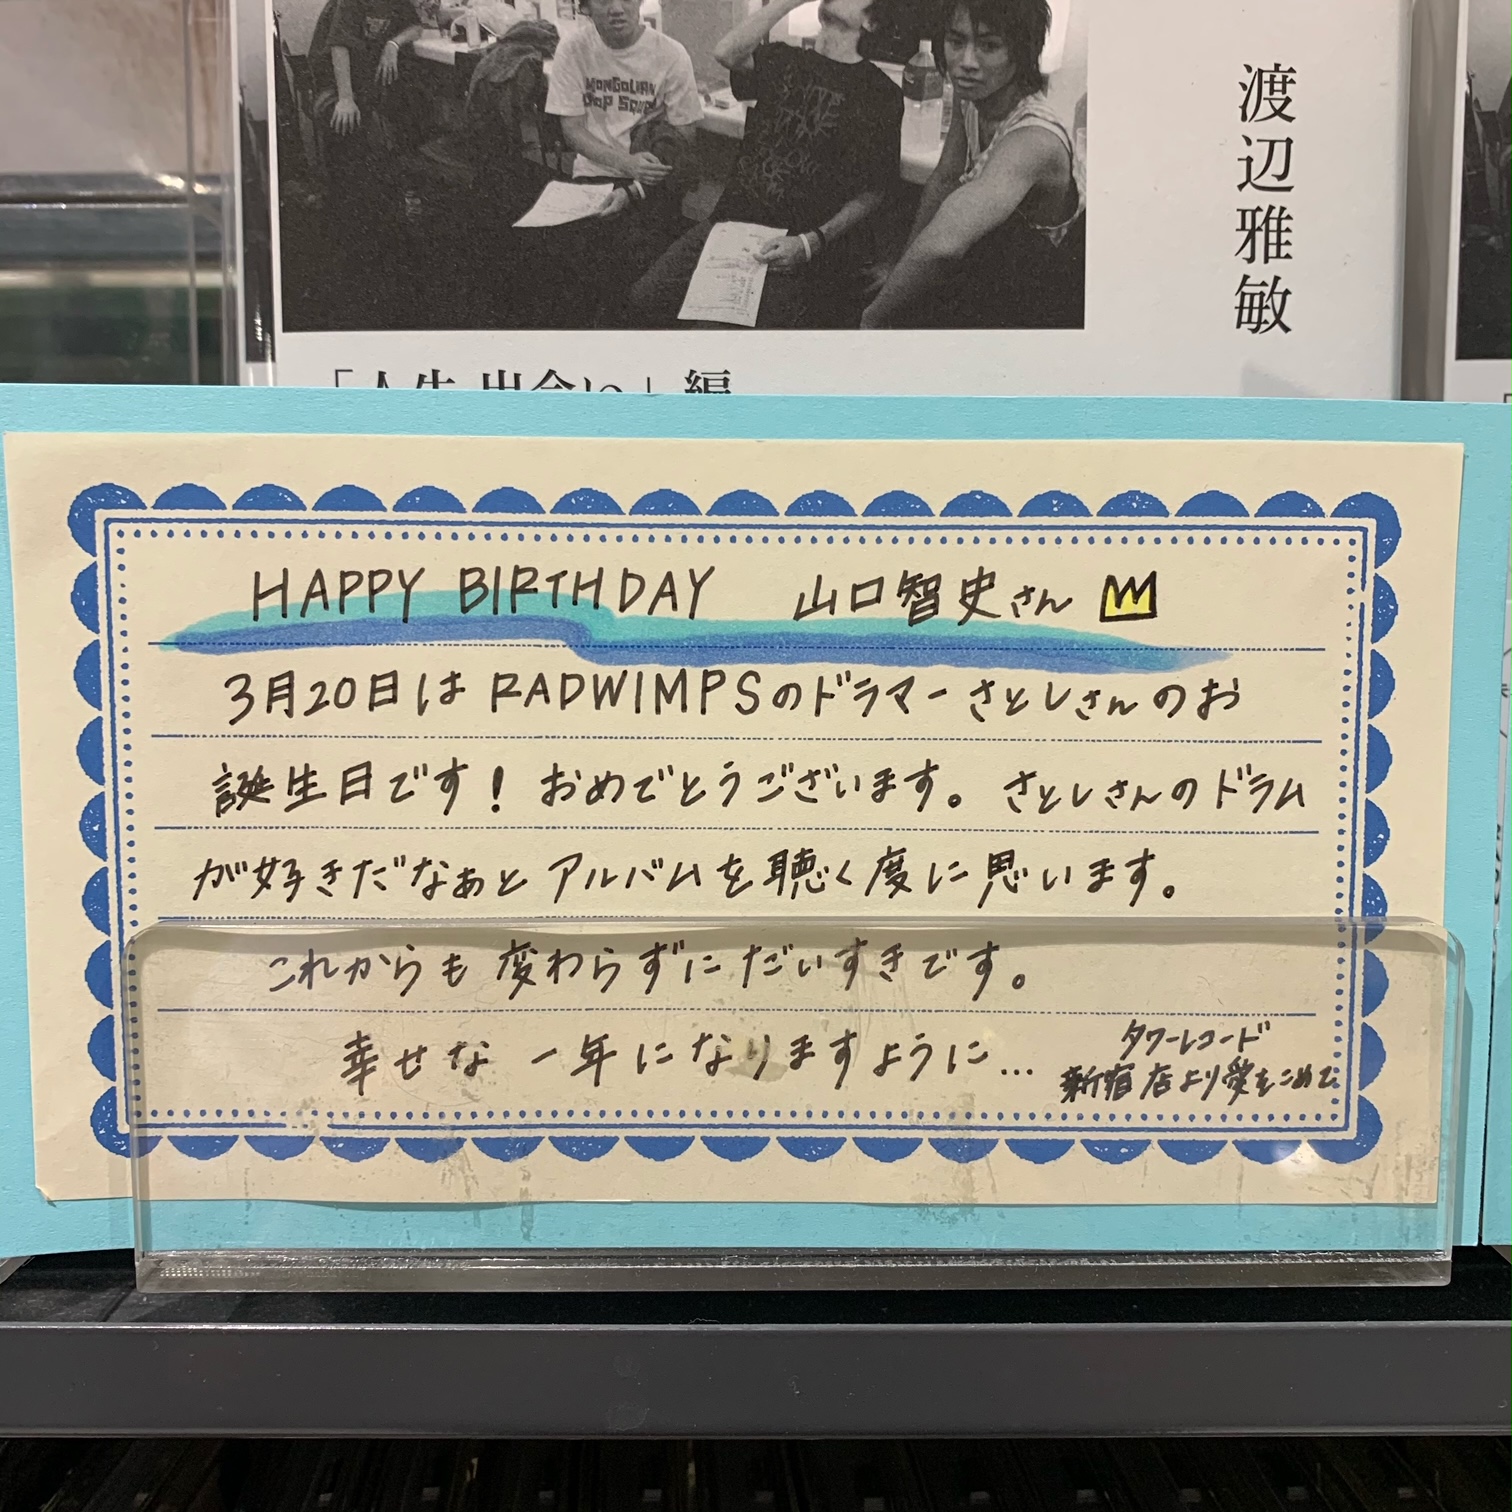 MONGOLIAN
CHOP SQUAD
渡辺雅敏
「人生 出会い」編
HAPPY BIRTHDAY 山口智史さん
3月20日は RADWIMPSのドラマーさとしさんのお
誕生日です！ おめでとうございます。 さとしさんのドラム
が好きだなぁと アルバムを聴く度に思います。
これからも 変わらずに だいすきです。
幸せな 一年に なりますように…
タワーレコード
新宿店より愛をこめて